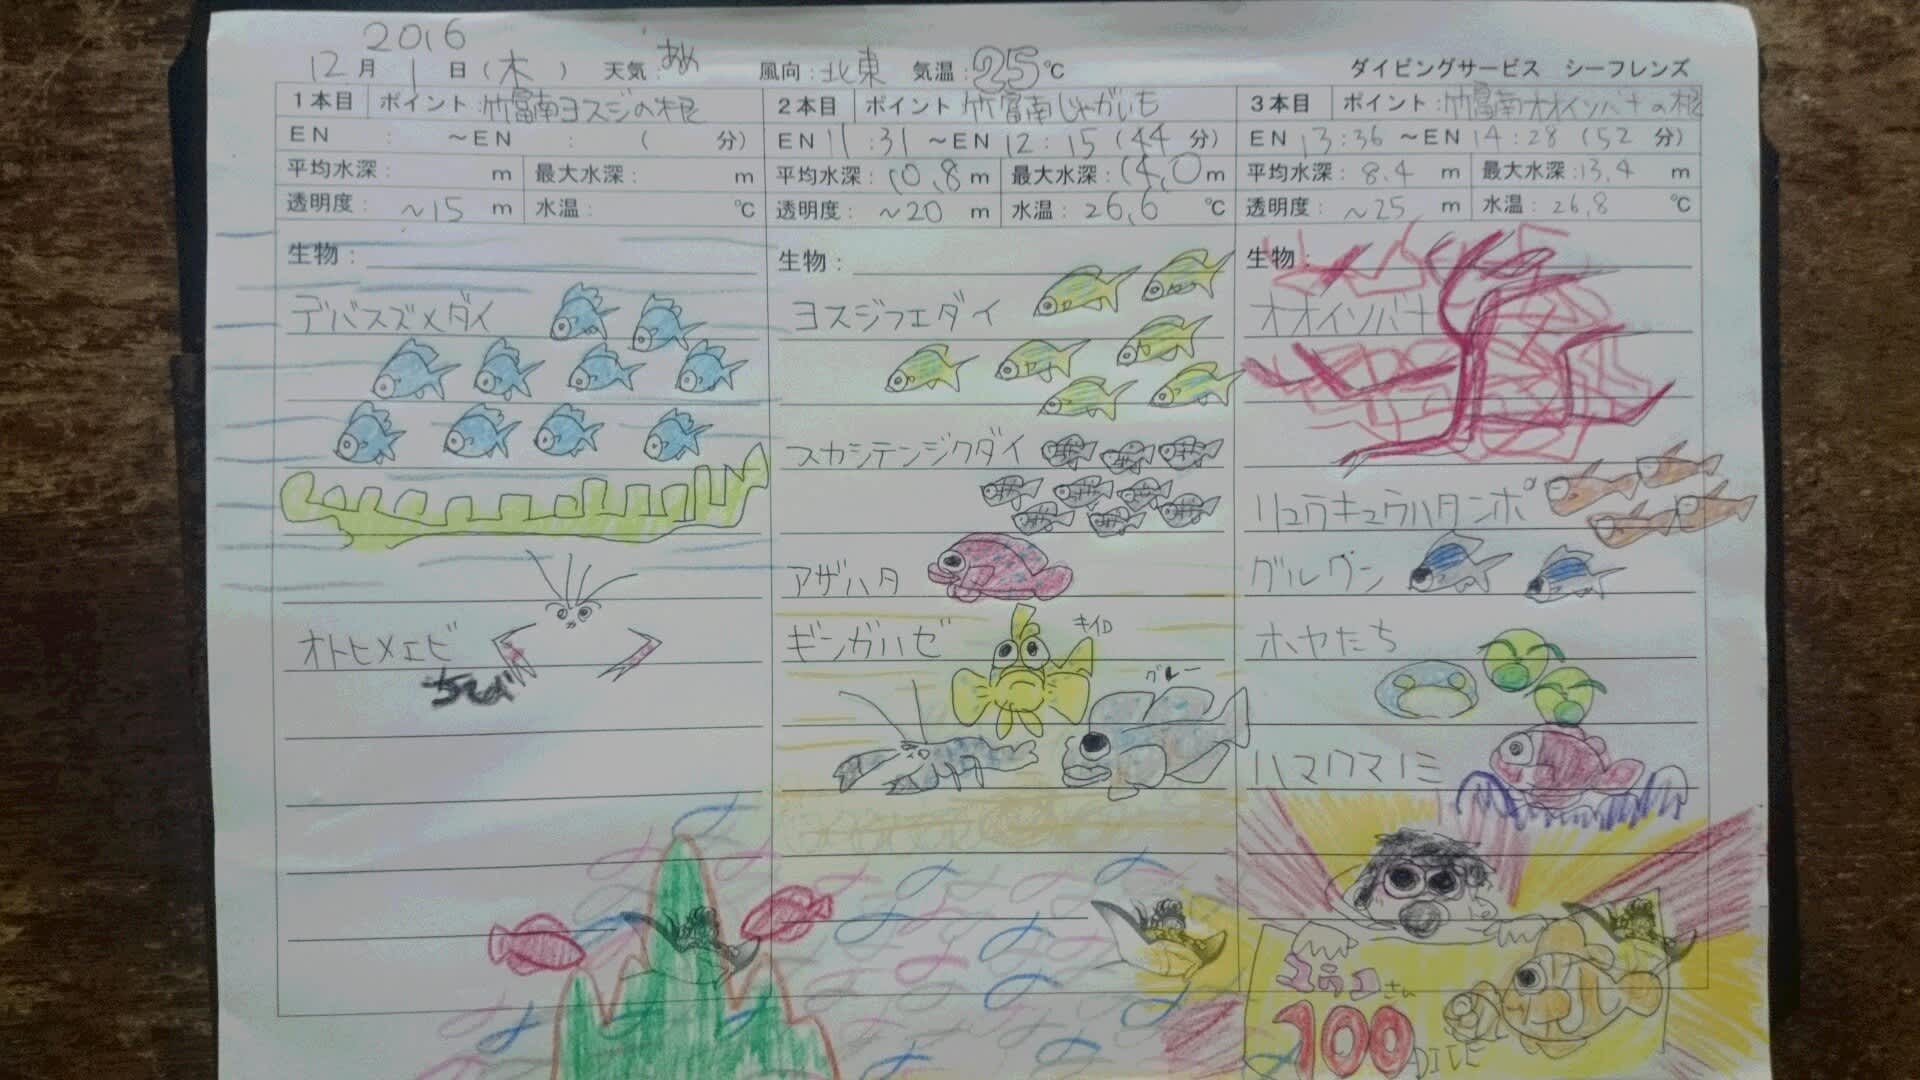 2016
12月 1日(木) 天気:あめ 風向:北東 気温:25℃ ダイビングサービス シーフレンズ
1本目 ポイント:竹富南ヨスジの根
EN : ～EN : ( 分)
平均水深: m 最大水深: m
透明度: ~15 m 水温: ℃
生物:
デバスズメダイ
オトヒメエビ
ちび
2本目 ポイント:竹富南じゃがいも
EN 11:31 ～EN 12:15 (44 分)
平均水深:10.8m 最大水深:14.0m
透明度: ~20 m 水温: 26.6 ℃
生物:
ヨスジフエダイ
スカシテンジクダイ
アザハタ
ギンガハゼ
キイロ
グレー
3本目 ポイント:竹富南オオイソバナの根
EN 13:36 ～EN 14:28 (52 分)
平均水深: 8.4 m 最大水深:13.4 m
透明度: ~25 m 水温: 26.8 ℃
生物:
オオイソバナ
リュウキュウハタンポ
グルクン
ホヤたち
ハマクマノミ
さん
100 DIVE